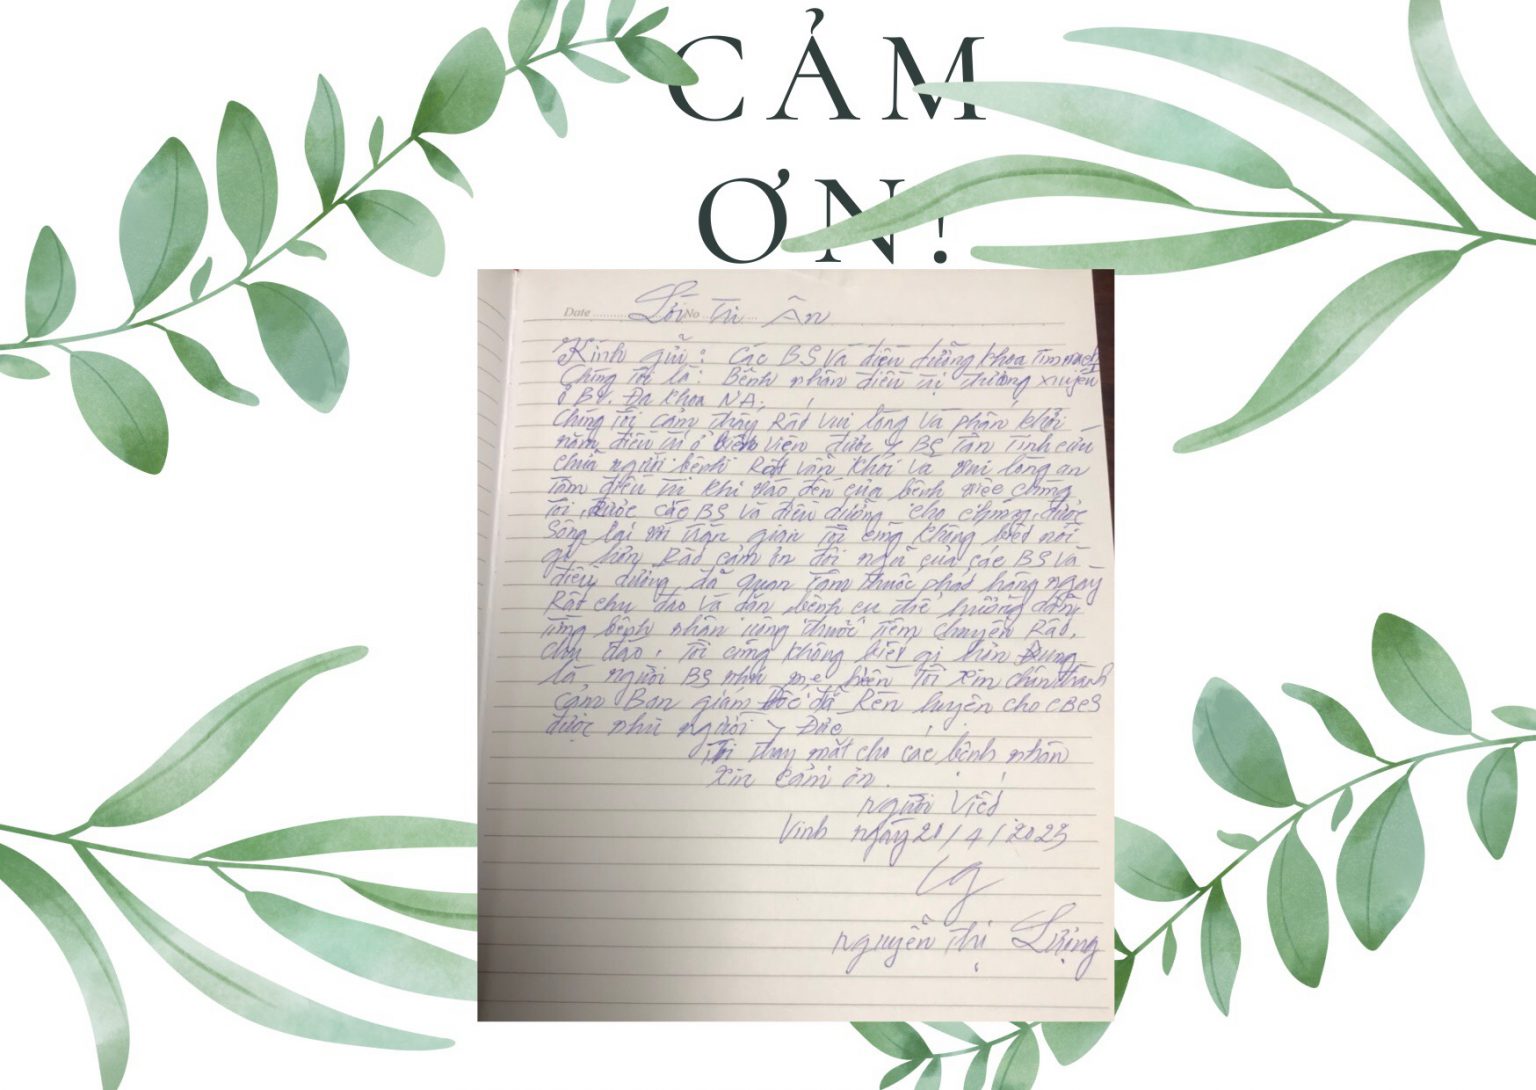 CẢM
ƠN!
Date No
Lời Tri Ân
Kính gửi: Các BS Và điều dưỡng khoa Tim mạch
Chúng Tôi là: Bệnh nhân điều trị thường xuyên
ở BV. Đa Khoa NA.
Chúng Tôi cảm thấy Rất vui lòng và phấn khởi
nằm điều trị ở viện được BS Tận Tình cứu
chữa người bệnh Rất phấn khởi và vui lòng an
Tâm điều trị khi vào đến của bệnh chúng
Tôi, được các BS và điều dưỡng cho chúng được
Sống lại Trần gian Tôi cũng không biết nói
gì hơn Rất cảm ơn đội ngũ của các BS và
điều dưỡng đã quan Tâm thuốc phát hàng ngày
Rất chu đáo và dặn bệnh cụ thể hướng dẫn
Từng bệnh nhân uống thuốc Tiêm chuyền Rất
chu đáo. Tôi cũng không biết gì hơn Đúng
là người BS như mẹ hiền Tôi xin chân thành
cảm Ban giám đốc đã Rèn luyện cho CBCS
được như người Đức
Tôi Thay mặt cho các bệnh nhân
Xin cảm ơn.
người viết
Vinh ngày 20/4/2023
nguyễn thị Lượng